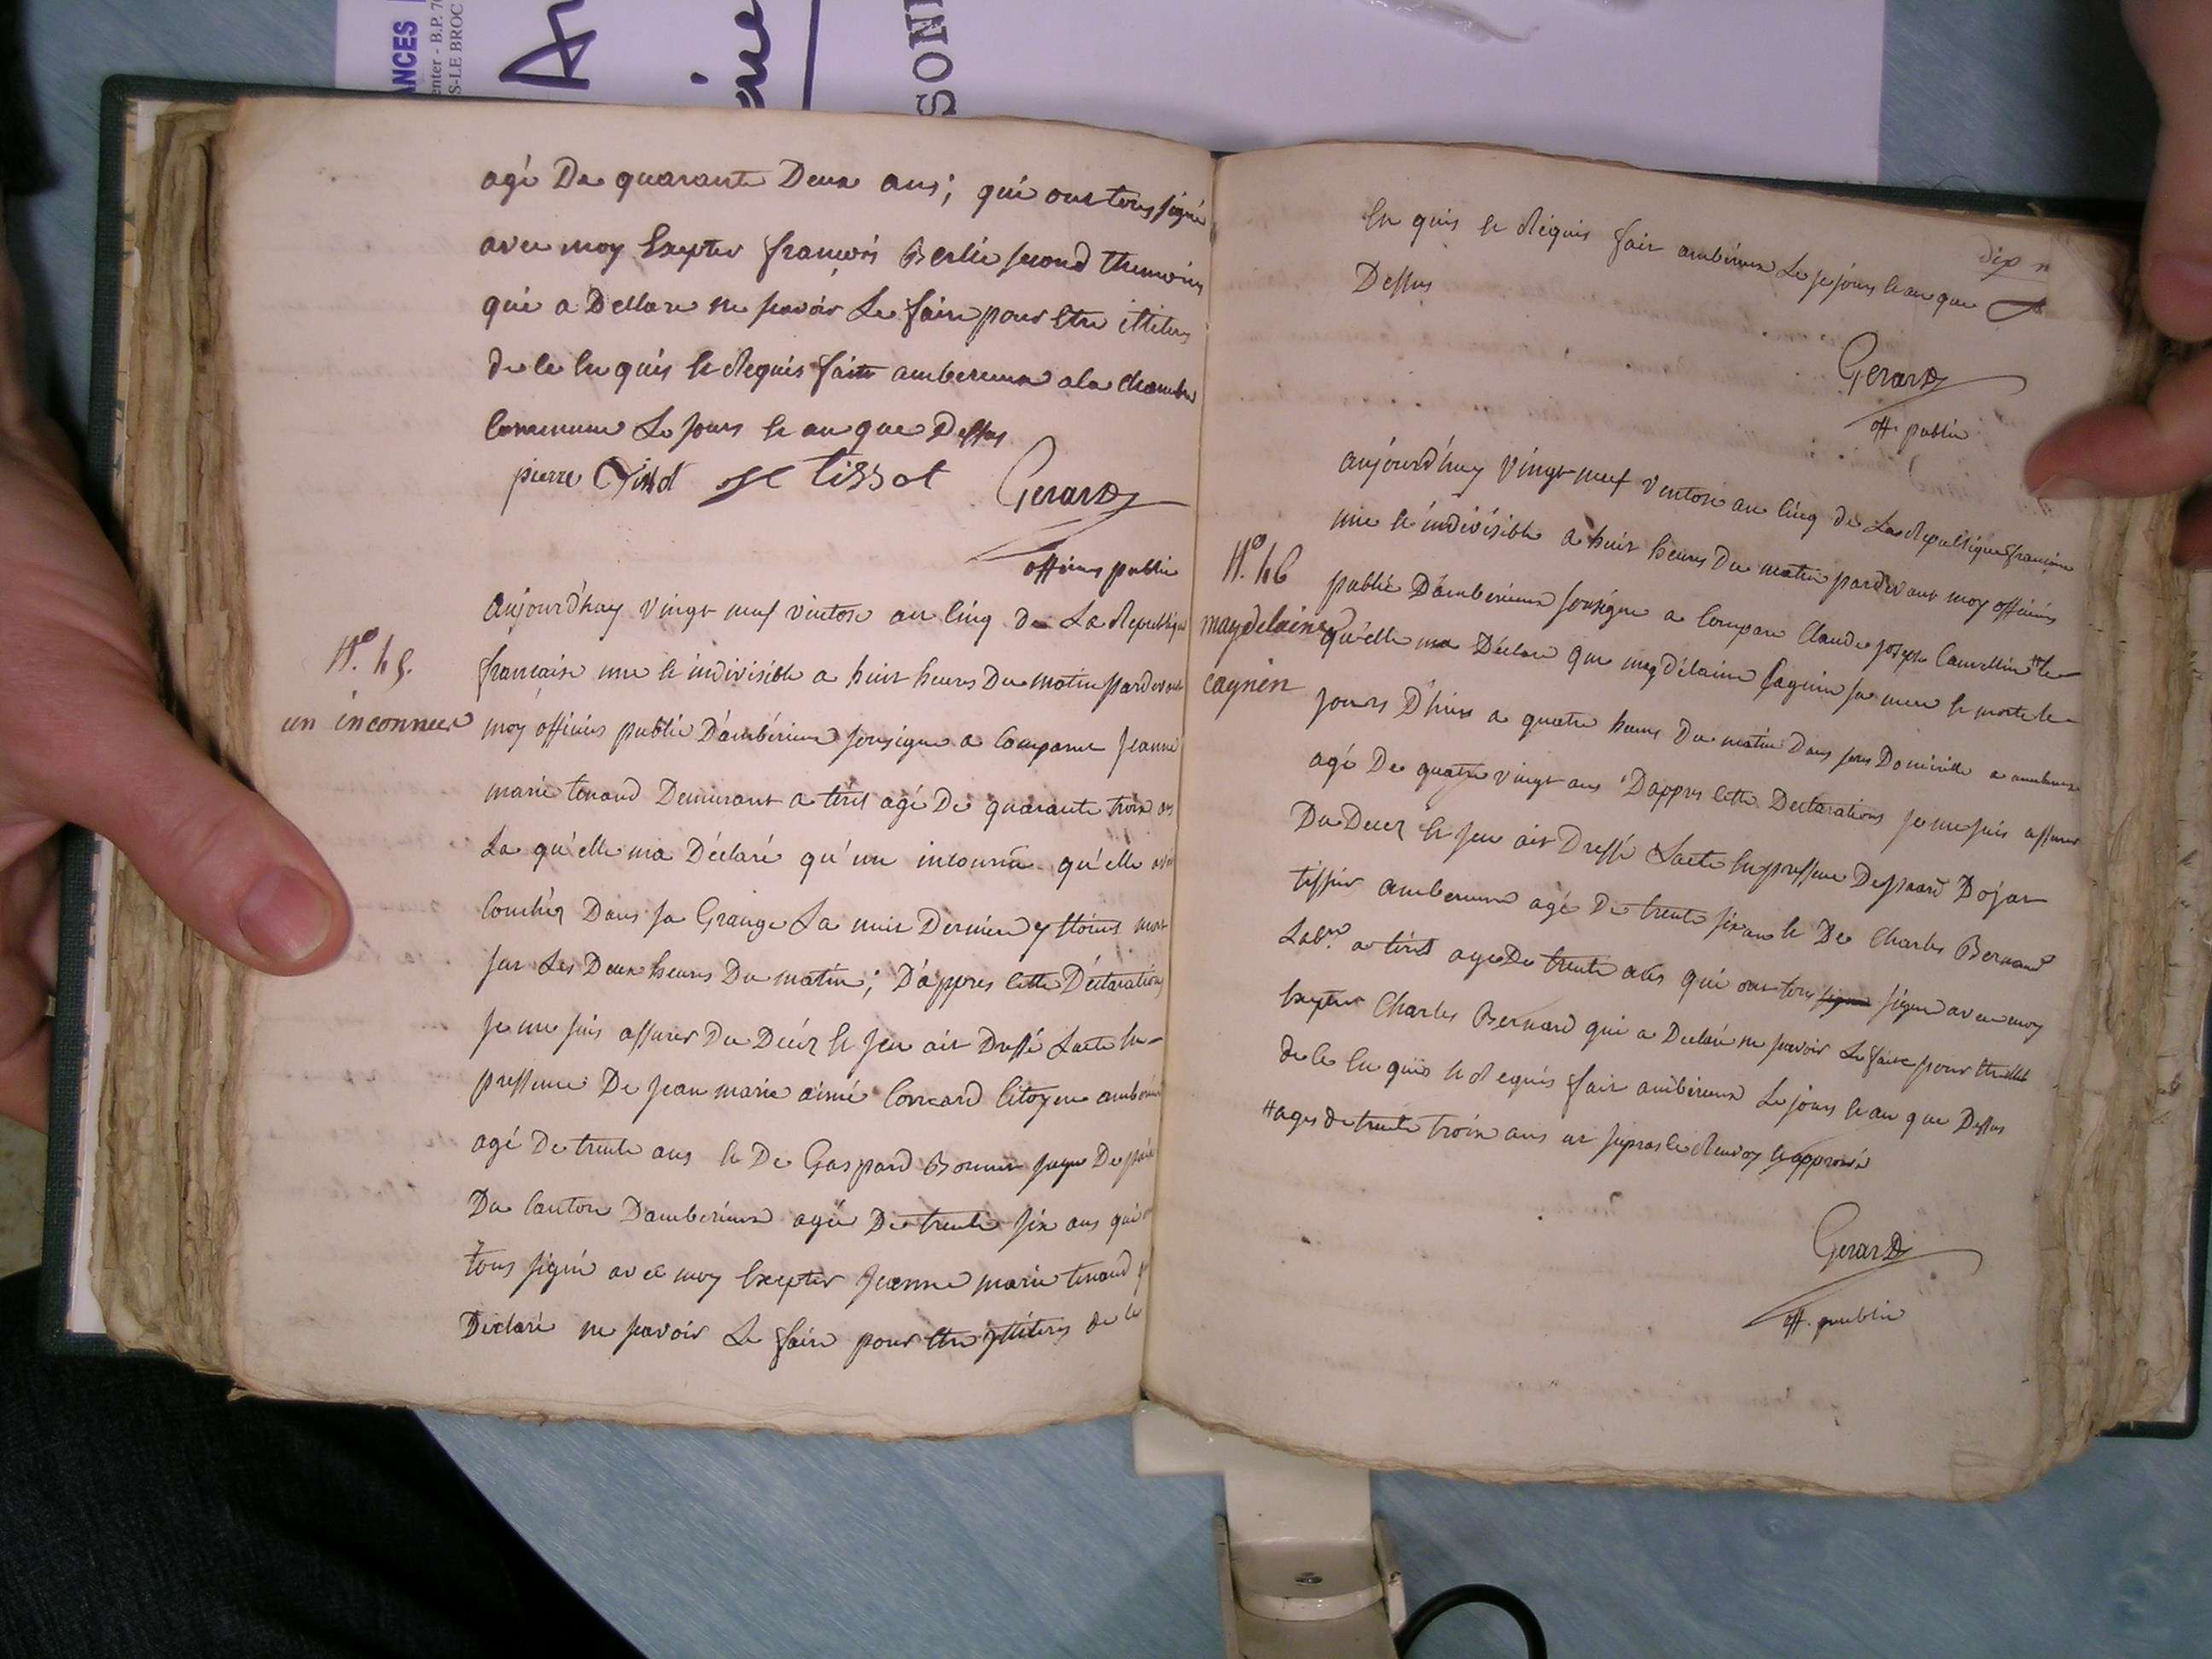 ANCES
enter - B.P. 70
S-LE BROC
SONN
agé De quarante Deux ans; qui ont tous signé
avec moy Excepter françois Berlie second themoins
qui a Dellare ne savoir Le faire pour Etre illiteres
de ce Enquis Et Requis fait amberieux a la Chambre
Commune Le Jours Et an que Dessus
pierre Tissot tissot Gerard
officiers public
N.º 45.
un inconnue
aujourd'huy vingt neuf ventose an Cinq De La Republique
francaise une Et indivisible a huit heures Du matin pardevant
moy officiers public D'ambérieux sousigne a Comparue Jeanne
marie tenand Demeurant a tiret agé De quarante troix ans
La qu'elle ma Déclaré qu'un inconnu qu'elle avoit
Couchez Dans sa Grange La nuit Derniere y Etoient mort
sur Les Deux heures Du matin; D'appres Cette Déclaration
Je me suis assurer Du Décéz Et Jen ait Dressé Lacte En-
pressence De Jean marie aimé Citoyen amberieux
agé De trente ans Et De Gaspard Bonnet juge De paix
Du Canton Damberieux agé De trente six ans qui
tous signé avec moy Excepter Jeanne marie tenand
Déclaré ne savoir Le faire pour Etre illiteres de ce
dix n
Enquis Et Réquis fait amberieux Le jours Et an que
Dessus
Gerard
off. public
N.º 46
magdelaine
cagnin
aujourd'huy vingt neuf ventose an Cinq de La Republique francaise
une Et indivisible a huit heures Du matin pardevant moy officiers
public D'amberieux sousigne a Compare Claude joseph
qu'elle ma Déclare que magdelaine Cagnin sa mere Et morte le
Jours D'hiers a quatre heures Du matin Dans sons Domicille a amberieux
agé De quatre vingt ans D'appres Cette Declarations Je me suis assurer
Du Decez Et Jen ait Dressé Lacte En pressence De
tissier amberieux agé De trente six ans Et De Charles Bernard
Labr. a tiret age De trente ans qui ont tous signe signe avec moy
Excepter Charles Bernard qui a Declaré ne savoir Le faire pour Etre
de ce Enquis Et Requis fait amberieux Le jours Et an que Dessus
ages de trente troix ans Renvoy Et approuvé
Gerard
off. public